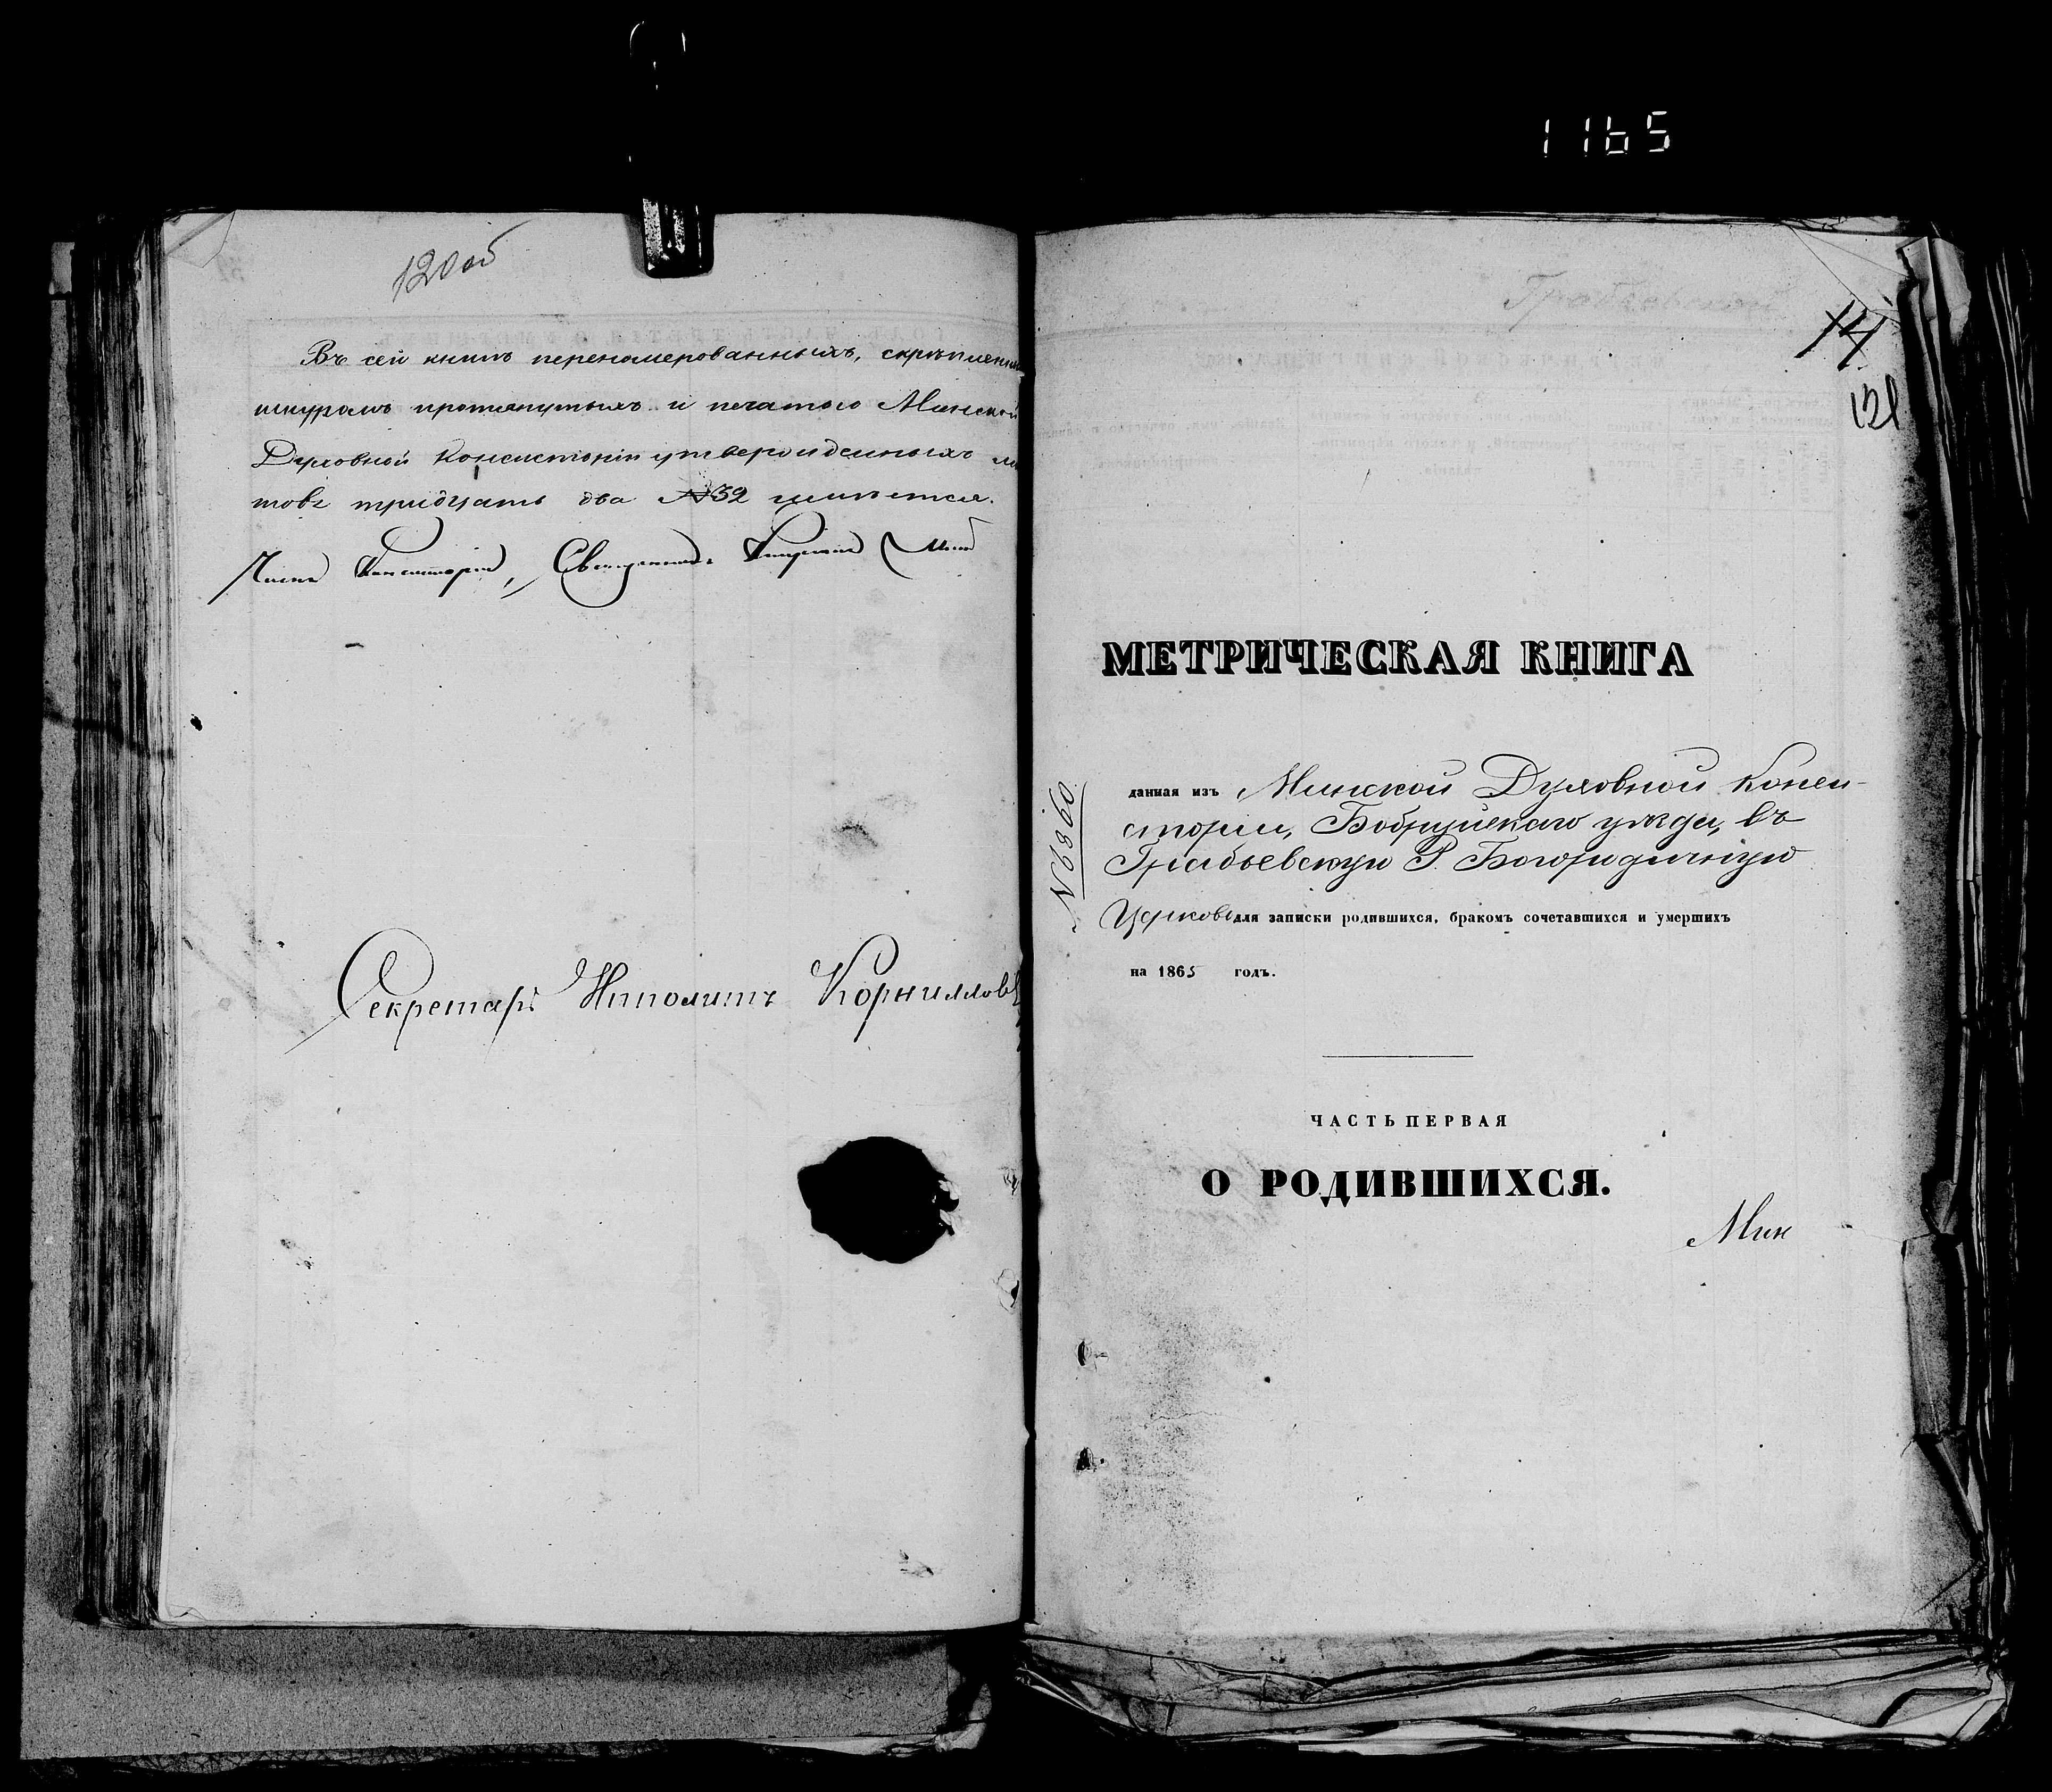 1165
120 об
Въ сей книгѣ перенумерованныхъ, скрѣпленны
шнуромъ протянутыхъ и печатью Минской
Духовной Консисторіи утвержденныхъ ли
товъ тридцать два №32 числится.
Членъ Консисторіи, Священникъ
Секретарь Иполитъ Корниллов
14
121
МЕТРИЧЕСКАЯ КНИГА
№6360
данная изъ Минской Духовной Конси-
сторіи, Бобруйскаго уѣзда, въ
Грабьевскую Р. Богородичную
Церковь для записки родившихся, бракомъ сочетавшихся и умершихъ
на 1865 годъ.
ЧАСТЬ ПЕРВАЯ
О РОДИВШИХСЯ.
Мин